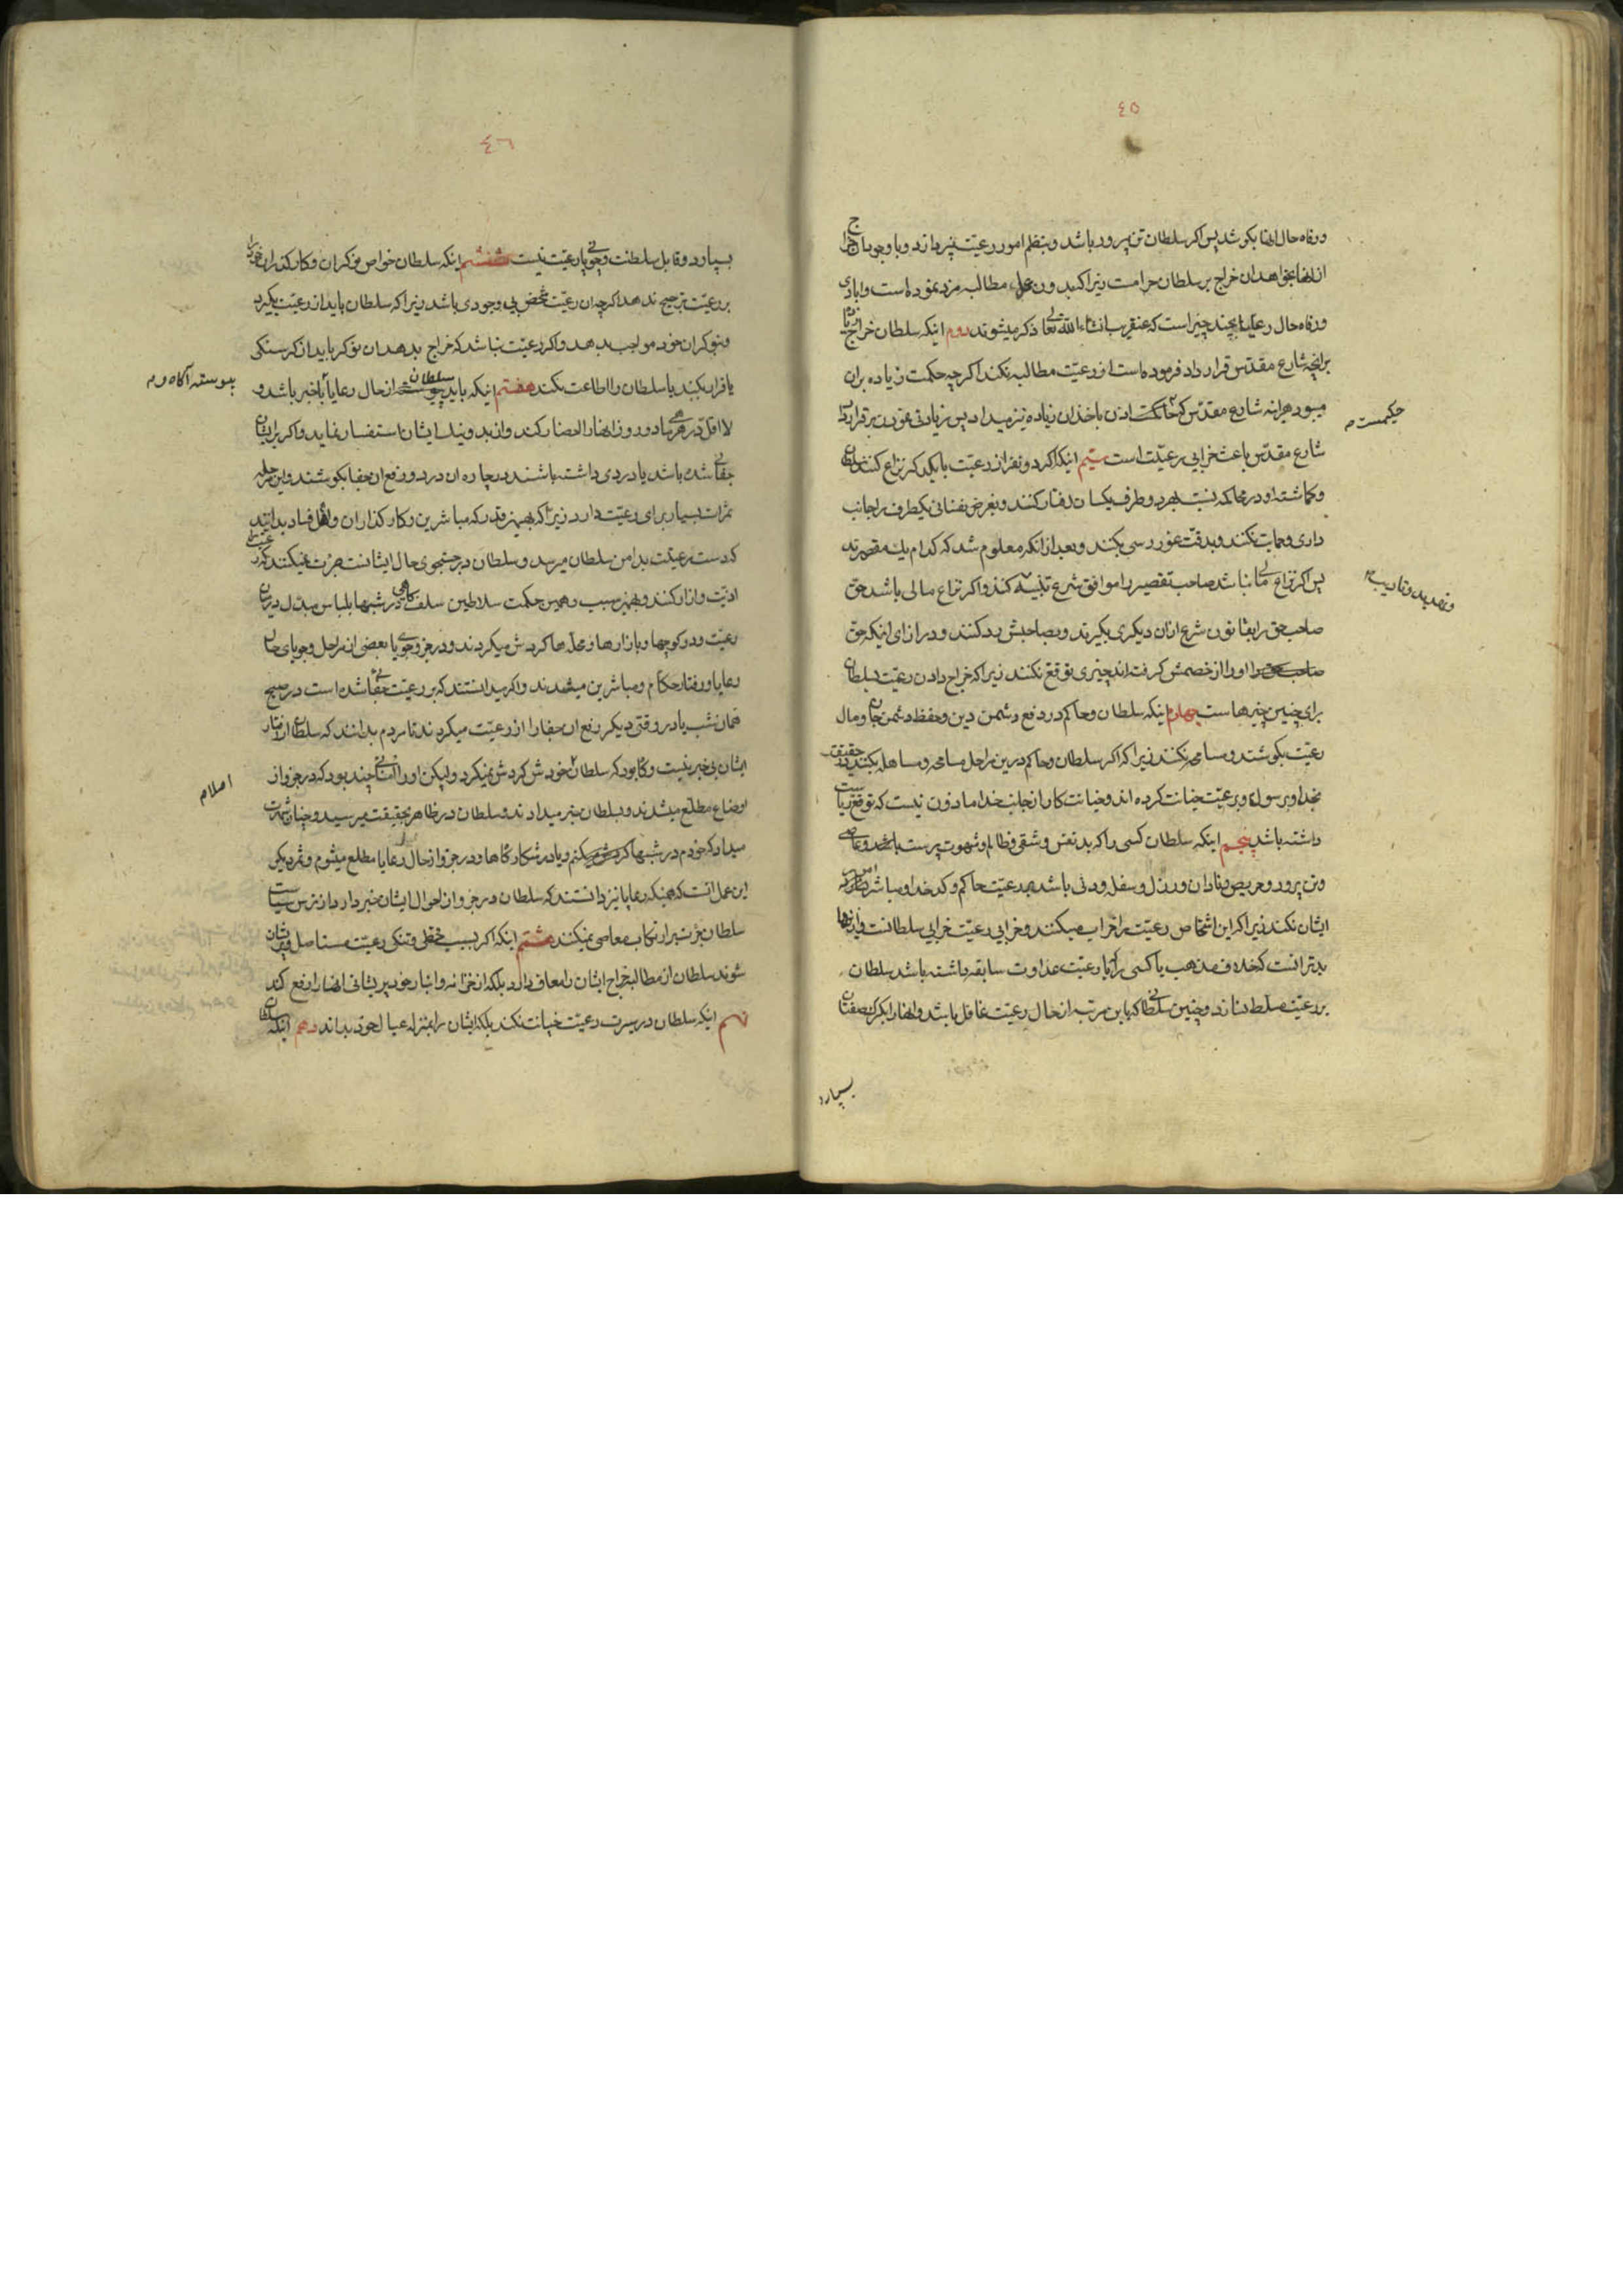 ٤٥
ورفاه حال انها بکوشد پس اکر سلطان تن پرور باشد و بنظم امور رعیّت نپردازد و با وجود ان خراج
از انها بخواهد ان خراج بر سلطان حرامست زیرا که بدون عمل مطالبه مزد نموده است و ابادی
ورفاه حال رعایا بچند چیز است که عنقریب انشاء الله تعا ذکر میشوند دوم اینکه سلطان خراج زیاد
بر انچه شارع مقدّس قرار داد فرموده است از رعیّت مطالبه نکند اکر چه حکمت زیاده بران
میبود هرانه شارع مقدّس که اذن باخذ ان زیاده نیز میداد پس زیادتی نمودن بر قرار داد
حکیمست
شارع مقدّس باعث خرابی رعیّت است سیّم اینکه اکر دو نفر از رعیّت با یکدکر نزاع کنند سلطان
وکماشته او در محاکمه نسبت بهر دو طرف یکسان رفتار کنند و بغرض نفسانی یکطرف را جانب
داری و حمایت نکنند و بدقّت غور رسی بکنند و بعد از انکه معلوم شد که کدام یک مقصّرند
پس اکر نزاع مالی نباشد صاحب تقصیر را موافق شرع تنبیه کنند و اکر نزاع مالی باشد حق
و تهدید و تادیب
صاحب حق را بقانون شرع از ان دیکری بکیرند و بصاحبش رد کنند و در ازای اینکه حق
او را از خصمش کرفته اند چیزی توقع نکنند زیرا که خراج دادن رعیّت بسلطان
برای چنین چیزهاست چهارم اینکه سلطان و حاکم در دفع دشمن دین و حفظ دشمن جان و مال
رعیّت بکوشند و مسامحه نکنند زیرا که اکر سلطان و حاکم درین مراحل مسامحه و مساهله بکنند در حقیقت
بخدا و برسول و برعیّت خیانت کرده اند و خیانت کار از جانب خدا ماذون نیست که توقع ریاست
داشته باشد پنجم اینکه سلطان کسی را که بد نفس و شقی و ظالم و شهوت پرست باشد و عاصی
وتن پرور و حریص و نادان و رذل و سفله و دنی باشد بر رعیّت حاکم و کدخدا و مباشر امور
ایشان نکند زیرا که این اشخاص رعیّت را خراب میکنند و خرابی رعیّت خرابی سلطانست و از انها
بدتر انست که خلاف مذهب یا کسی را که با رعیّت عداوت سابقه داشته باشد سلطان
بر رعیّت مسلط سازد و چنین سلطانی که باین مرتبه از حال رعیّت غافل باشد و انها را بکرک صفتان
بسپارد
٤٦
بسپارد و قابل سلطنت و جویای رعیّت نیست ششم اینکه سلطان خواص نوکران و کارکذاران خود را
بر رعیّت ترجیح ندهد اکرچه ان رعیّت شخص بی وجودی باشد زیرا که سلطان باید از رعیّت بکیرد
و بنوکران خود مواجب بدهد و اکر رعیّت نباشد که خراج بدهد ان نوکر باید از کرسنکی
یا فرار بکند یا سلطان را اطاعت نکند هفتم اینکه باید سلطان از حال رعایا باخبر باشد و
پیوسته آکاه و
لااقل در هر ماه دو روز انها را احضار کند و از بد و نیک ایشان استفسار نماید و اکر بر ایشان
جفائی شده باشد یا دردی داشته باشند در چاره ان درد و رفع ان جفا بکوشند و این مرحله
ثمرات بسیار برای رعیّت دارد زیرا که بهمین قدر که مباشرین و کارکذاران و اهل فساد بدانند
که دست رعیّت بدامن سلطان میرسد و سلطان در جستجوی حال ایشانست جرئت نمیکنند که رعیّت را
اذیّت و ازار کنند و بهمین سبب و همین حکمت سلاطین سلف کاهی در شبها بلباس مبدّل در میان
رعیّت و در کوچها و بازارها و محلّها کردش میکردند و در جزو جویا بعضی از مراحل و جویای حال
رعایا و رفتار حکّام و مباشرین میشدند و اکر میدانستند که بر رعیّت جفائی شده است در صبح
همان شب یا در وقتی دیکر رفع ان جفا را از رعیّت میکردند تا مردم بدانند که سلطان از رفتار
ایشان بی خبر نیست و کاه بود که سلطان خودش کردش نمیکرد و لیکن او را امنائی چند بود که در جزو از
اوضاع مطلّع میشدند و بسلطان خبر میدادند و سلطان در ظاهر بحقیقت میرسید و چنان شهرت
اصلا
میداد که خودم در شبها کردش میکنم و یا در شکارکاهها و در جزو از حال رعایا مطلع میشوم و ثمره دیکر
این عمل انست که همینکه رعایا نیز دانستند که سلطان در جزو از احوال ایشان خبر دارد از ترس سیاست
سلطان جرئت بر ارتکاب معاصی نمیکنند هشتم اینکه اکر بسبب قحطی و تنکی رعیّت مستاصل و پریشان
شوند سلطان از مطالبه خراج ایشان را معاف دارد بلکه از خزانه و انبار خود پریشانی انها را رفع کند
نهم اینکه سلطان در سیرت رعیّت خیانت نکند بلکه ایشان را بمنزله عیال خود بداند دهم اینکه سلطان